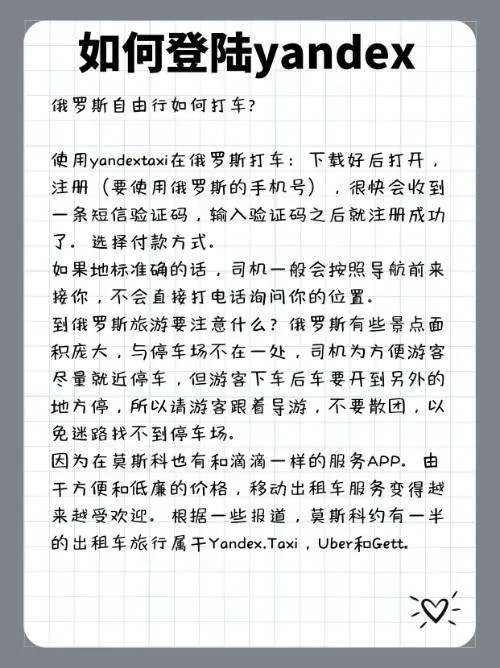 如何登陆yandex
俄罗斯自由行如何打车?
使用yandextaxi在俄罗斯打车：下载好后打开，
注册（要使用俄罗斯的手机号），很快会收到
一条短信验证码，输入验证码之后就注册成功
了。选择付款方式。
如果地标准确的话，司机一般会按照导航前来
接你，不会直接打电话询问你的位置。
到俄罗斯旅游要注意什么？俄罗斯有些景点面
积庞大，与停车场不在一处，司机为方便游客
尽量就近停车，但游客下车后车要开到另外的
地方停，所以请游客跟着导游，不要散团，以
免迷路找不到停车场。
因为在莫斯科也有和滴滴一样的服务APP。由
于方便和低廉的价格，移动出租车服务变得越
来越受欢迎。根据一些报道，莫斯科约有一半
的出租车旅行属于Yandex.Taxi，Uber和Gett.